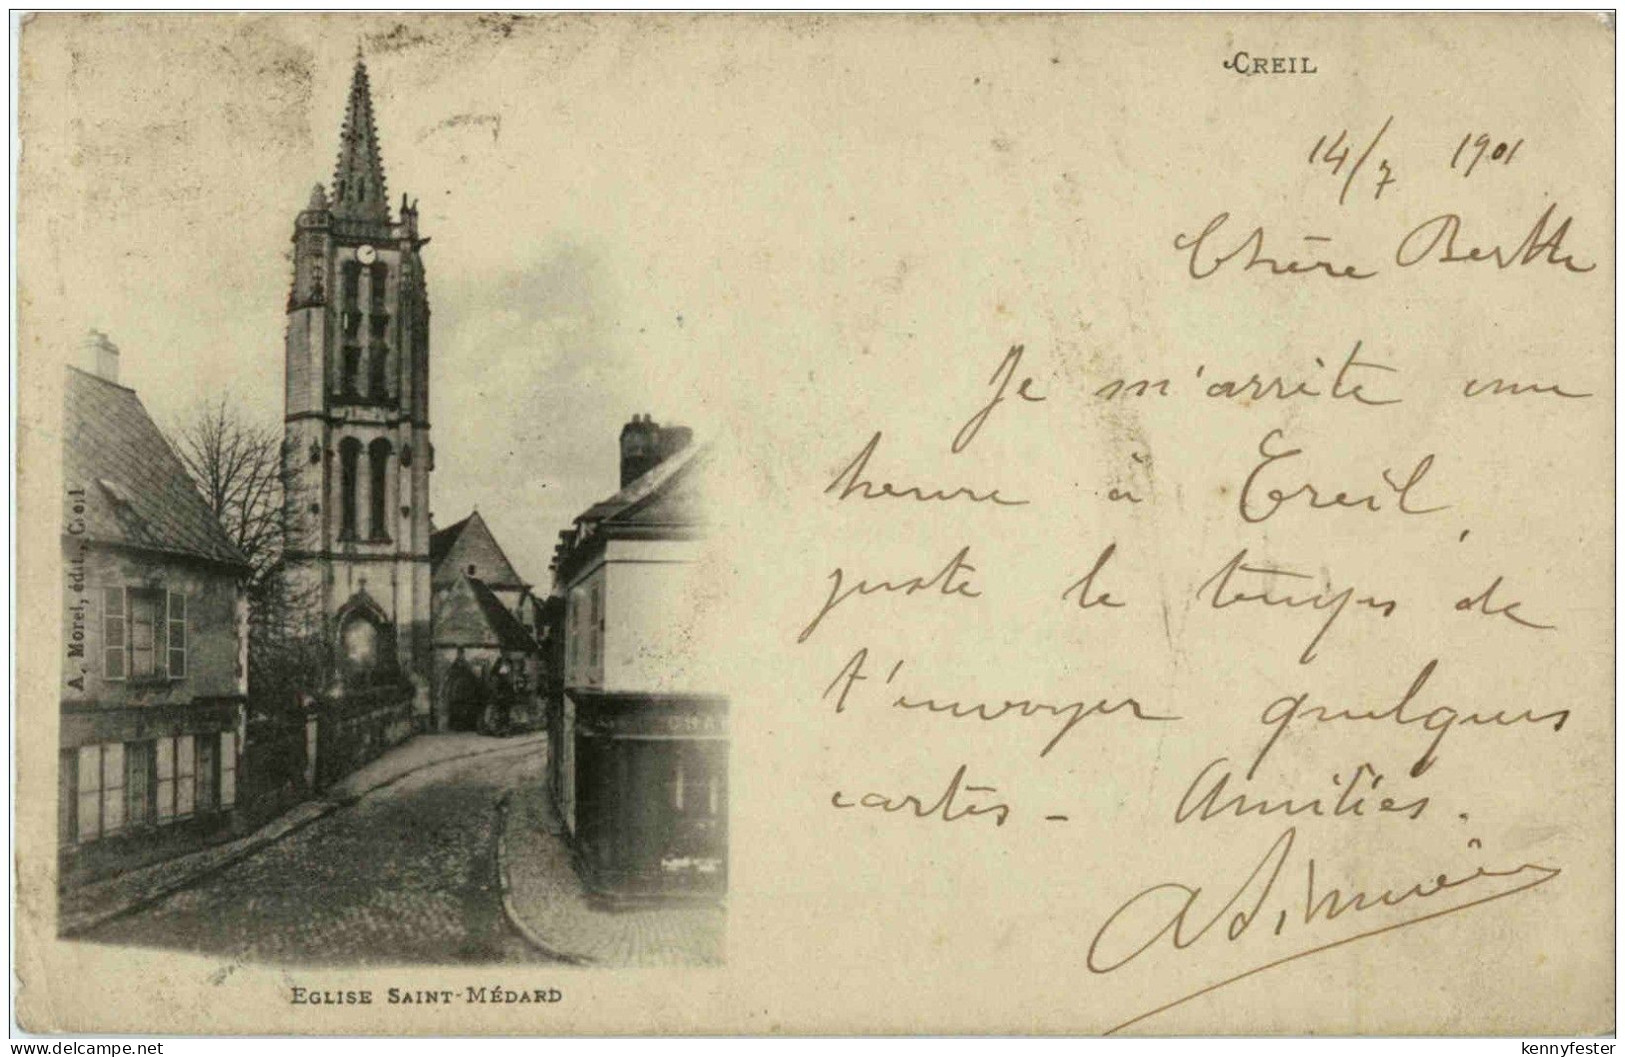 CREIL
14/7 1901
Chère Berthe
Je m'arrête une
heure à Creil,
juste le temps de
t'envoyer quelques
cartes - Amitiés.
A. Morel, édit., Creil
PHA
EGLISE SAINT-MÉDARD
www.delcampe.net
kennyfester